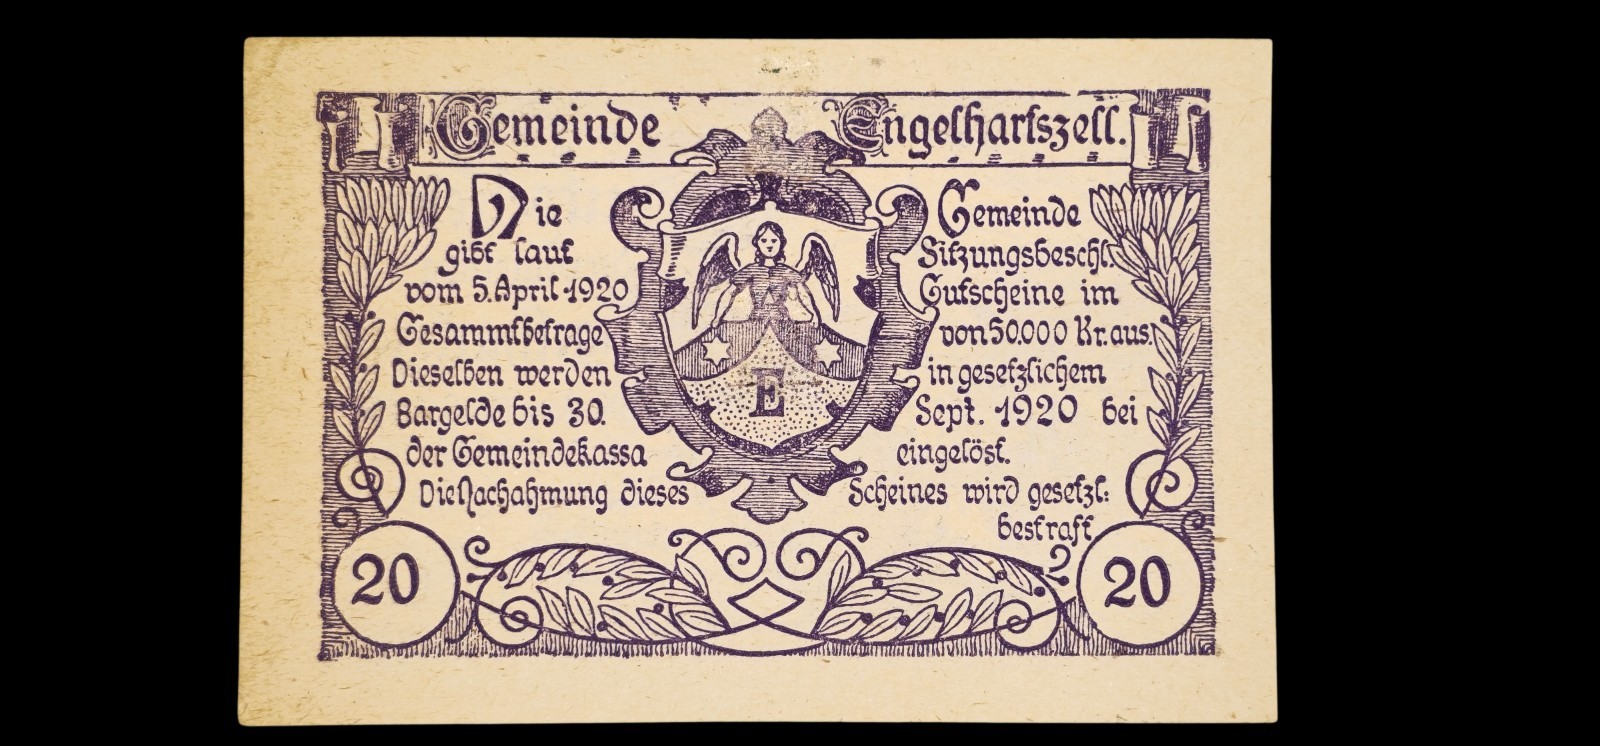 Gemeinde Engelhartszell.
Die Gemeinde
gibt laut Sitzungsbeschl.
vom 5. April 1920 Gutscheine im
Gesammtbetrage von 50.000 Kr. aus.
Dieselben werden in gesetzlichem
Bargelde bis 30. Sept. 1920 bei
der Gemeindekassa eingelöst.
Die Nachahmung dieses Scheines wird gesetzl:
bestraft
E
20 20